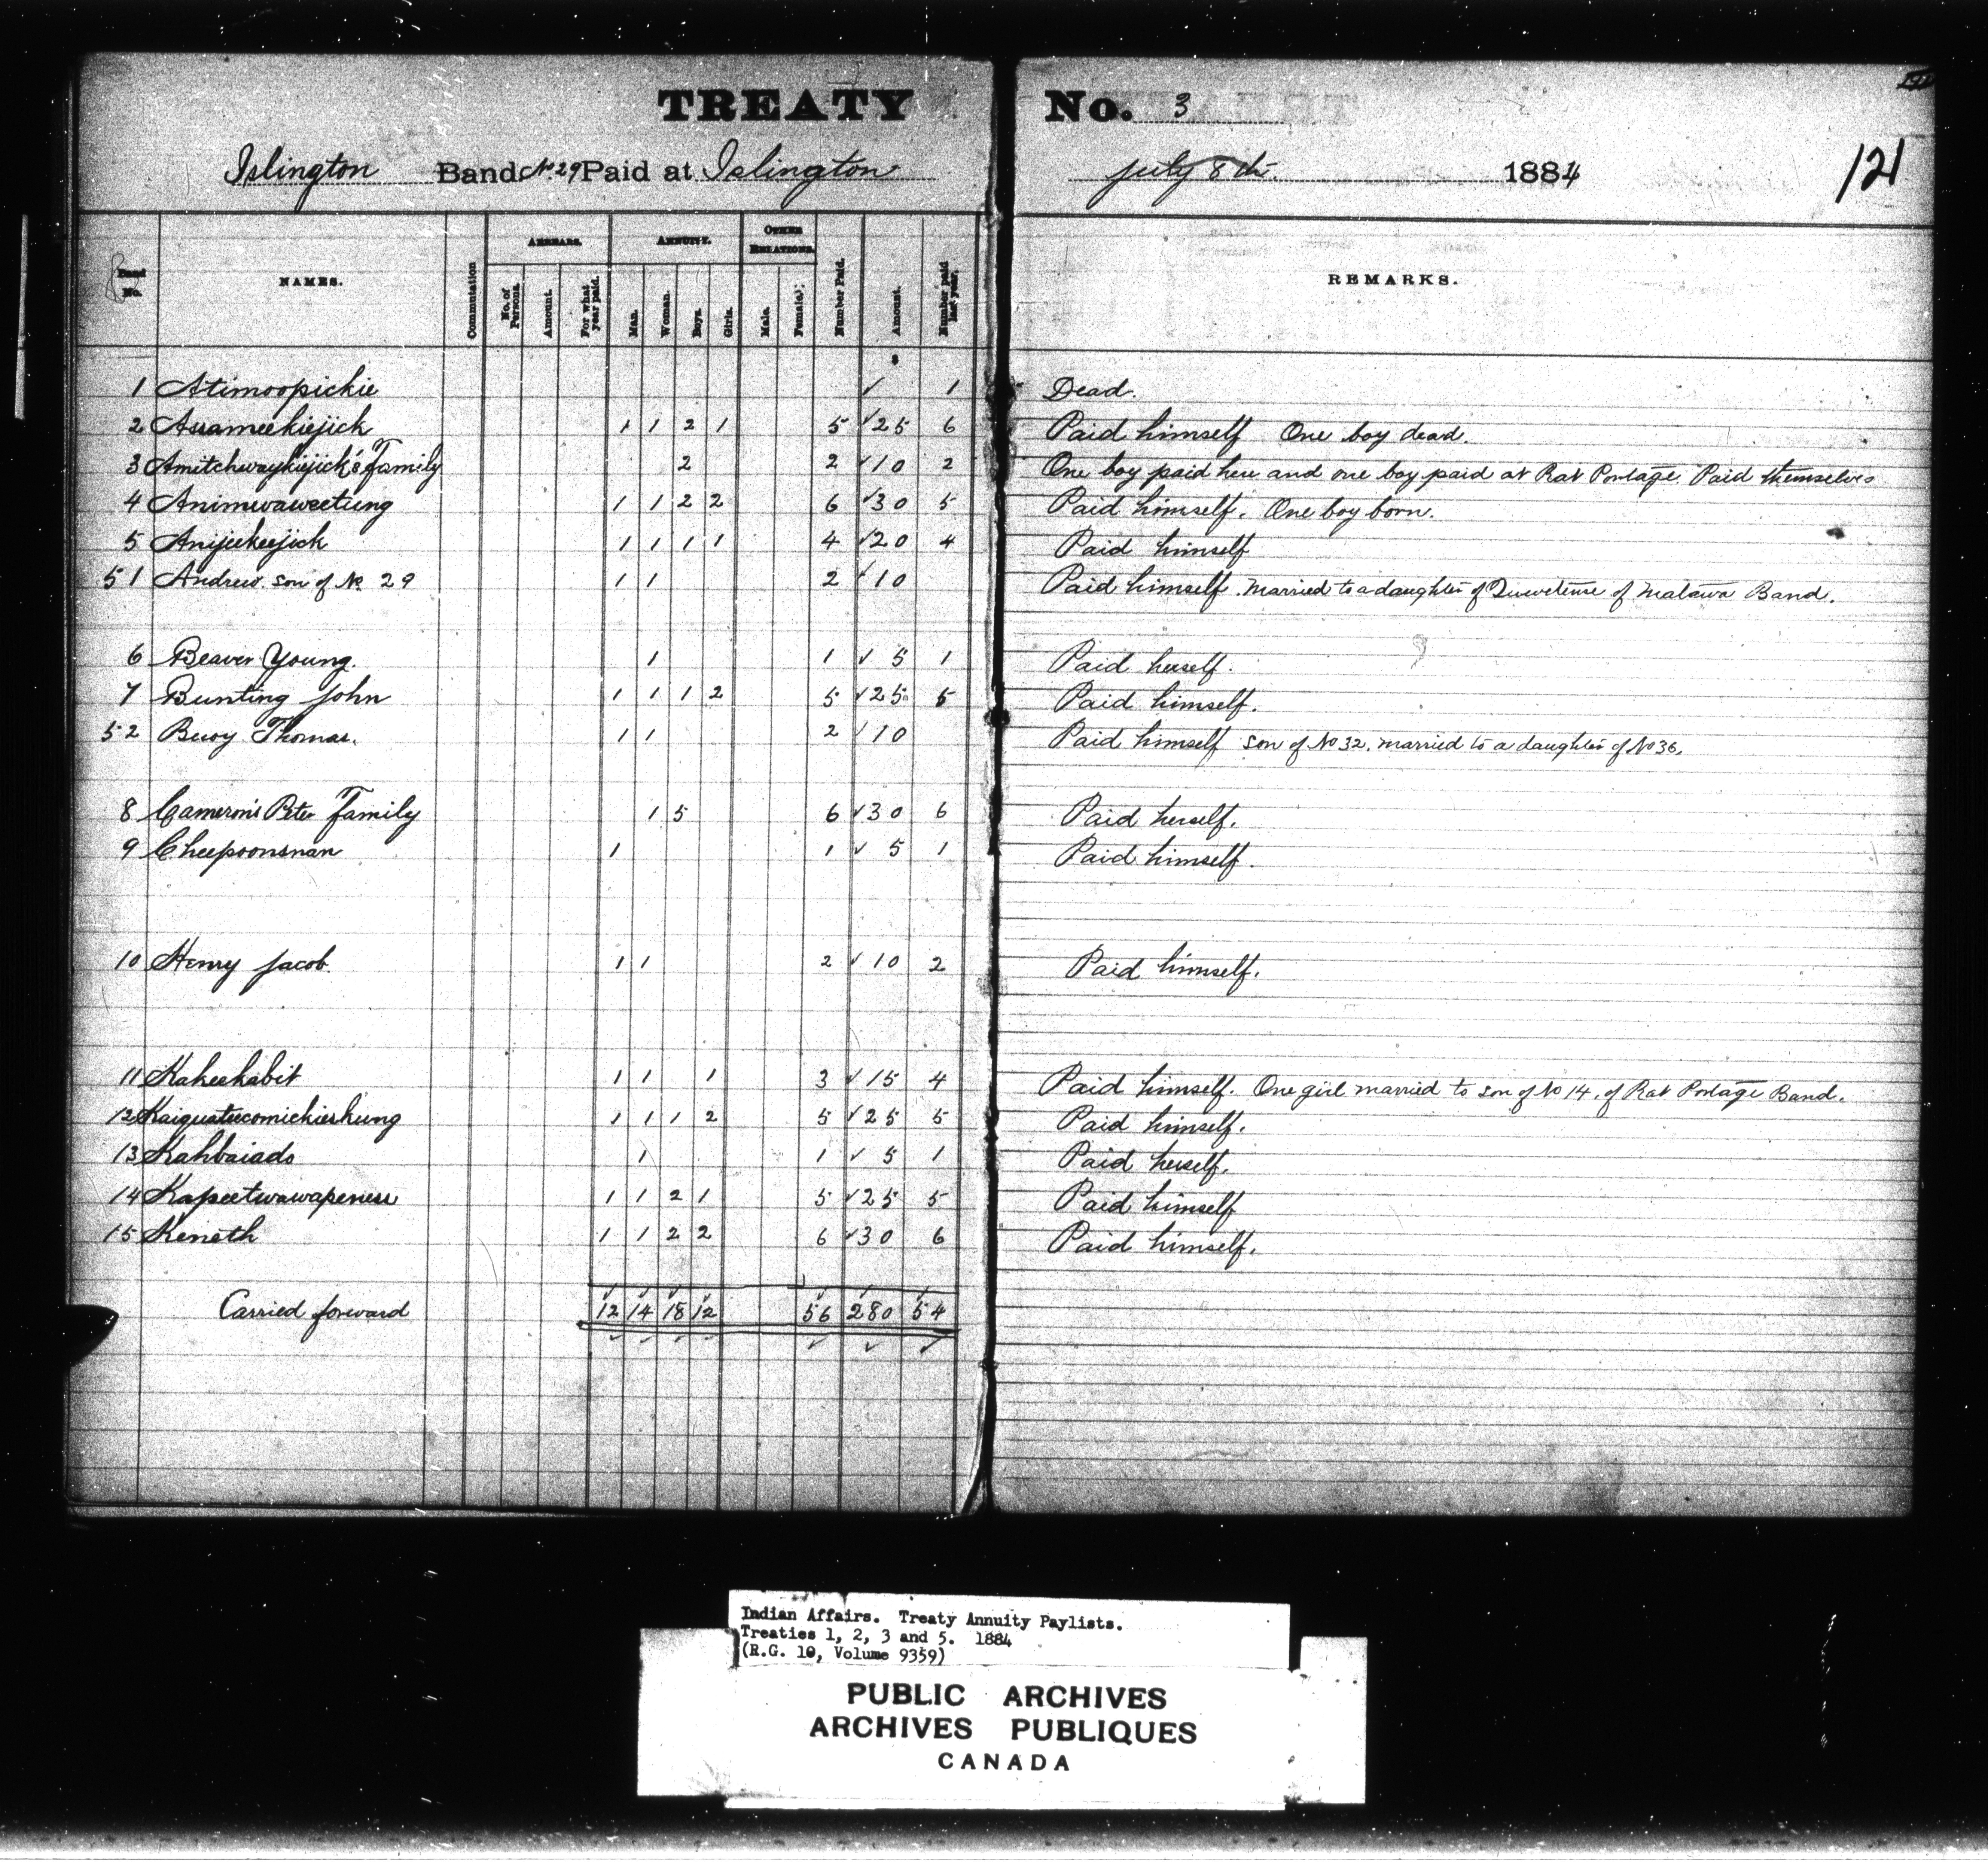 TREATY No. 3
Islington Band No. 29 Paid at Islington July 8th. 1884 121
Band No. NAMES. Commutation ARREARS. No. of Persons. Amount. For what year paid. ANNUITY. Man. Woman. Boys. Girls. OTHER RELATIONS. Male. Female. Number Paid. Amount. Number paid last year. REMARKS.
1 Atimoopickie ✓ 1 Dead.
2 Auameekiejick 1 1 2 1 5 ✓25 6 Paid himself One boy dead
3 Amitchwaykijick's Family 2 2 ✓10 2 One boy paid here and one boy paid at Rat Portage. Paid themselves
4 Animwaweetung 1 1 2 2 6 ✓30 5 Paid himself. One boy born.
5 Anijeekeejick 1 1 1 1 4 ✓20 4 Paid himself
51 Andrew. son of No. 29 1 1 2 ✓10 Paid himself. Married to a daughter of of Matawa Band.
6 Beaver Young. 1 1 ✓ 5 1 Paid herself.
7 Bunting John 1 1 1 2 5 ✓25 5 Paid himself.
52 Buoy Thomas. 1 1 2 ✓10 Paid himself son of No 32. married to a daughter of No 36.
8 Cameron's Peter Family 1 5 6 ✓30 6 Paid herself.
9 Cheepoonsnan 1 1 ✓ 5 1 Paid himself.
10 Henry Jacob. 1 1 2 ✓ 10 2 Paid himself.
11 Kakeekabit 1 1 1 3 ✓15 4 Paid himself. One girl married to son of No 14. of Rat Portage Band.
12 Kaiguateecomickieskung 1 1 1 2 5 ✓25 5 Paid himself.
13 Kahbaiads 1 1 ✓ 5 1 Paid herself.
14 Kapeetwawapeness 1 1 2 1 5 ✓25 5 Paid himself
15 Keneth 1 1 2 2 6 ✓30 6 Paid himself.
Carried forward 12 14 18 12 56 280 54
Indian Affairs. Treaty Annuity Paylists.
Treaties 1, 2, 3 and 5. 1884
(R.G. 10, Volume 9359)
PUBLIC ARCHIVES
ARCHIVES PUBLIQUES
CANADA